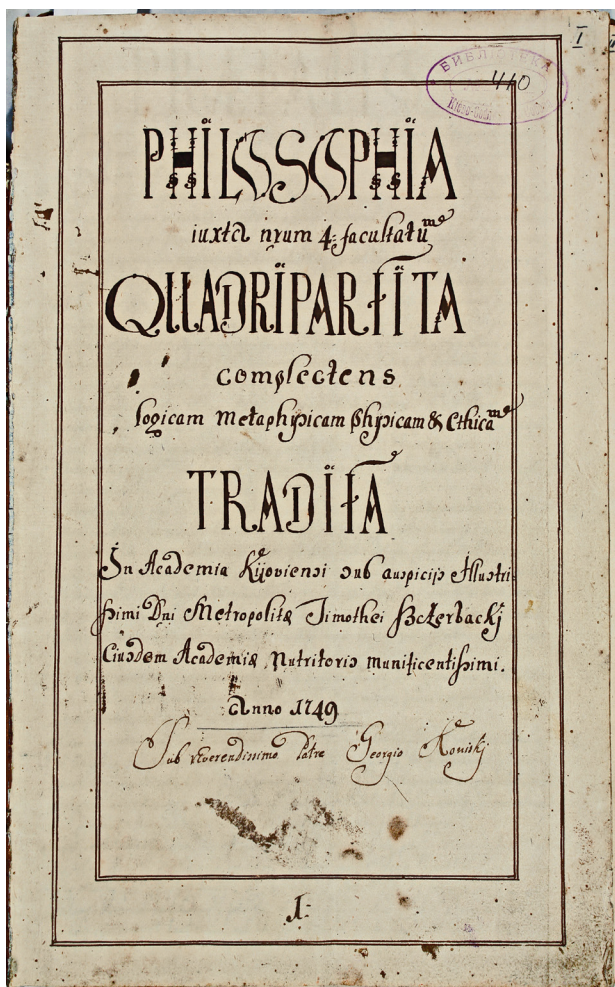 I
БИБЛИОТЕКА
410
PHILOSOPHIA
iuxta nrum 4: facultatum
QUADRIPARTITA
complectens
logicam Metaphysicam Physicam & Ethicam
TRADITA
In Academia Kijoviensi sub auspicijs Illustri
ssimi Dni Metropolitæ Timothei Szczerbackj
Eiusdem Academiæ Nutritoris munificentissimi.
Anno 1749
Sub reverendissimo Patre Georgio Koniskj
1.